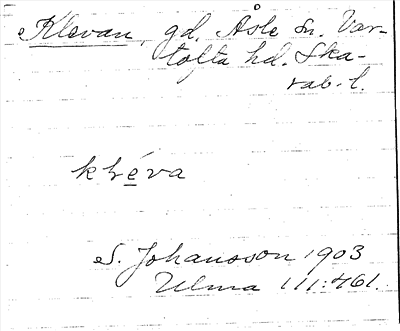 Klevan, gd. Åsle sn. Var-
tofta hd. Ska-
rab. l.
kléva
S. Johansson 1903
Ulma 111:461.